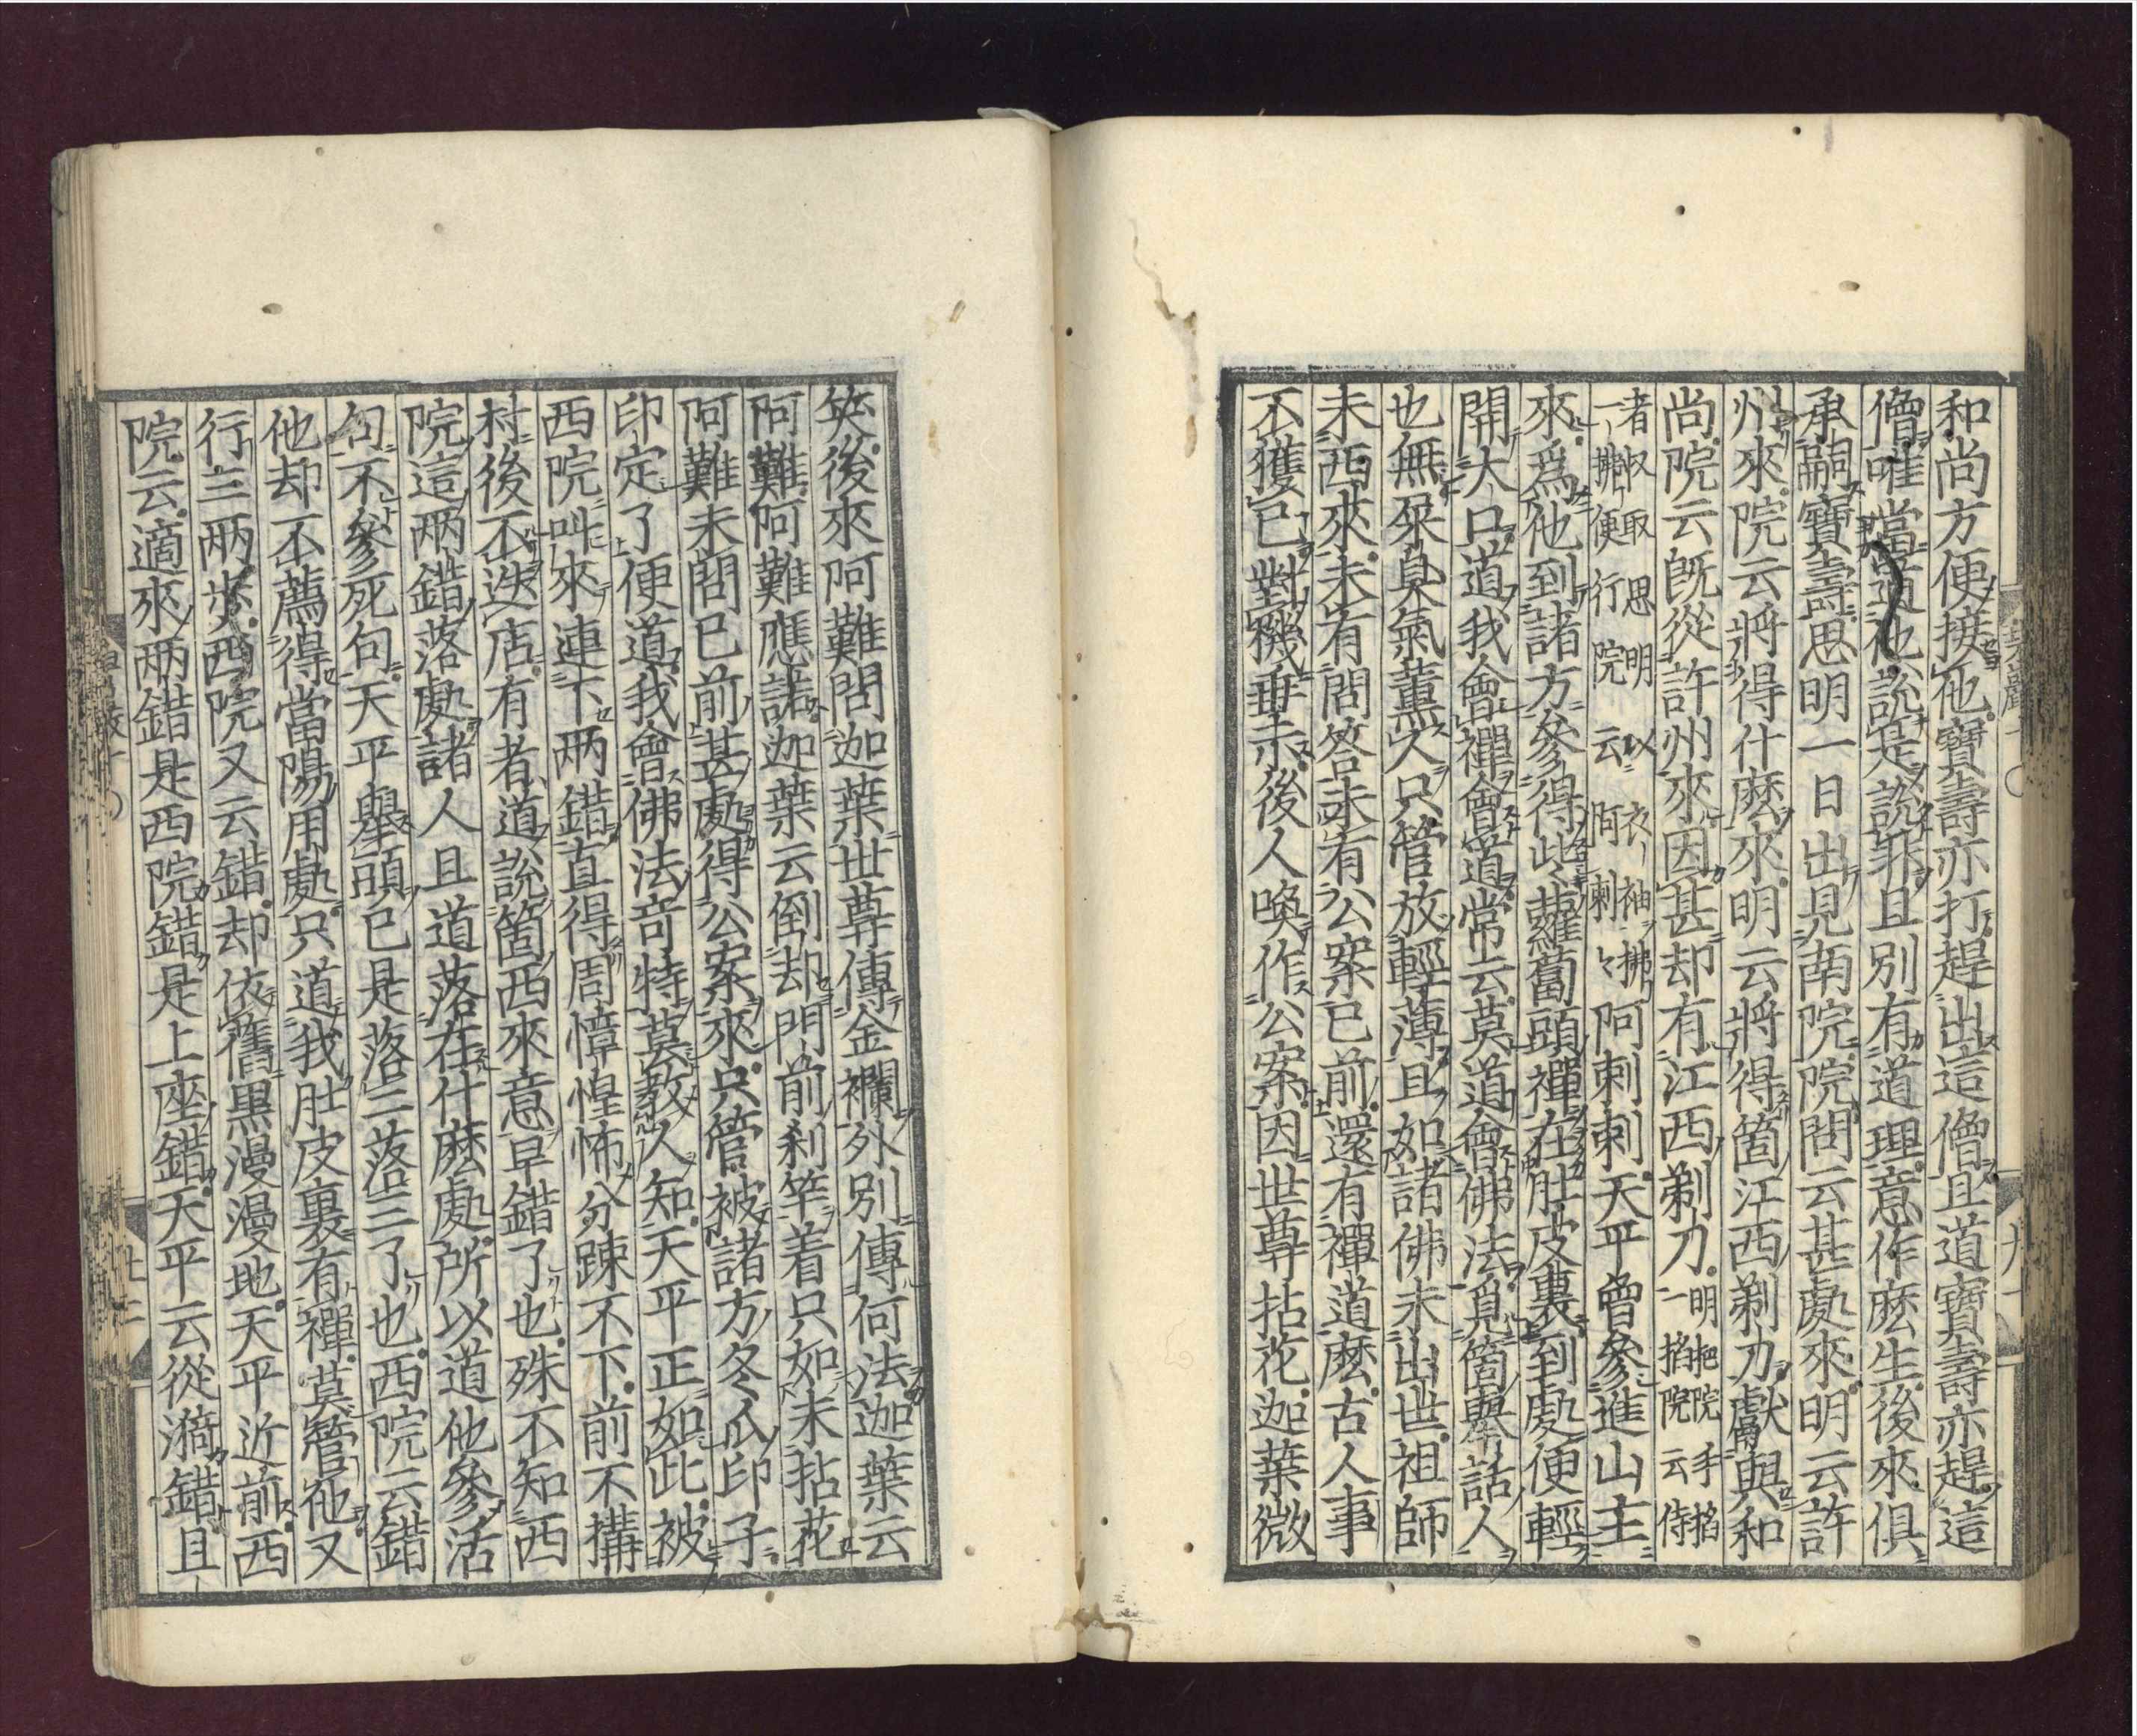 和尚方便接他寶壽亦打趕出這僧且道寶壽亦趕這
僧唯當道他說是說非且別有道理意作麽生後來俱
承嗣寶壽思明一日出見南院院問云甚處來明云許
州來院云將得什麽來明云將得箇江西剃刀獻與和
尚院云旣從許州來因甚却有江西剃刀明把院手掐
一掐院云侍
者收取思明以衣袖拂
一拂便行院云阿剌々阿剌剌天平曾參進山主
來爲他到諸方參得些蘿蔔頭禪在肚皮裏到處便輕
開大口道我會禪會道常云莫道會佛法覓箇舉話人
也無屎臭氣薰人只管放輕薄且如諸佛未出世祖師
未西來未有問答未有公案已前還有禪道麽古人事
不獲已對機垂示後人喚作公案因世尊拈花迦葉微
笑後來阿難問迦葉世尊傳金襴外別傳何法迦葉云
阿難阿難應諾迦葉云倒却門前刹竿着只如未拈花
阿難未問已前甚處得公案來只管被諸方冬瓜印子
印定了便道我會佛法奇特莫教人知天平正如此被
西院叫來連下兩錯直得周慞惶怖分疎不下前不搆
村後不迭店有者道說箇西來意早錯了也殊不知西
院這兩錯落處諸人且道落在什麽處所以道他參活
句不參死句天平擧頭已是落二落三了也西院云錯
他却不薦得當陽用處只道我肚皮裏有禪莫管他又
行三兩步西院又云錯却依舊黑漫漫地天平近前西
院云適來兩錯是西院錯是上座錯天平云從漪錯且